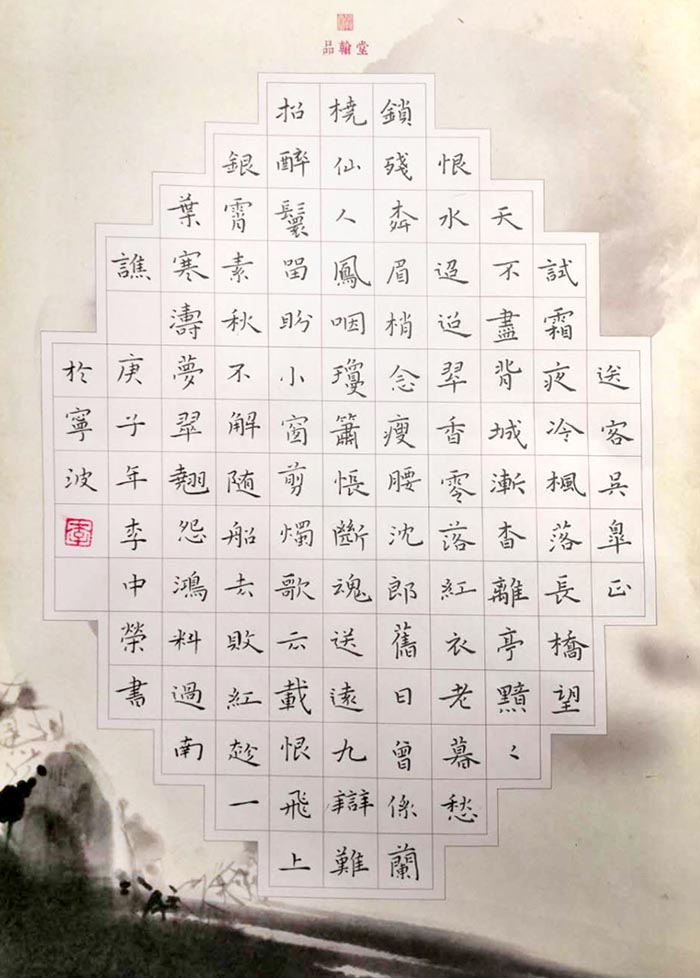 品翰堂
送客吳皐正
試霜夜冷楓落長橋望
天不盡背城漸杳離亭黯〻
恨水迢迢翠香零落紅衣老暮愁
鎖殘桺眉梢念瘦腰沈郎舊日曾係蘭
橈仙人鳳咽瓊簫悵斷魂送遠九辯難
招醉鬟畱盼小窗剪燭歌云載恨飛上
銀霄素秋不解随船去敗紅趂一
葉寒濤夢翠翹怨鴻料過南
譙 庚子年李中榮書
於寧波